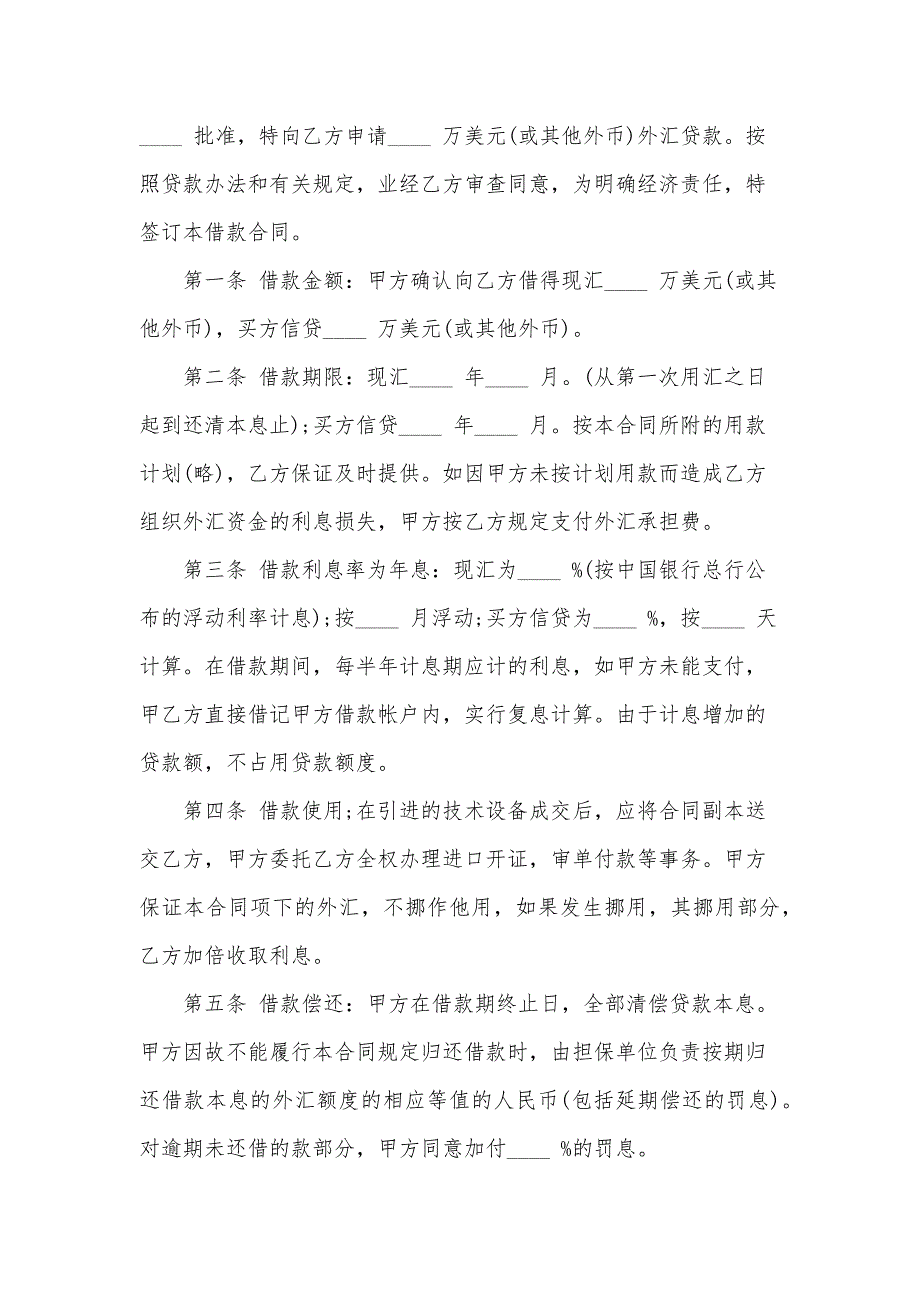 ____ 批准，特向乙方申请____ 万美元(或其他外币)外汇贷款。按
照贷款办法和有关规定，业经乙方审查同意，为明确经济责任，特
签订本借款合同。
第一条 借款金额：甲方确认向乙方借得现汇____ 万美元(或其
他外币)，买方信贷____ 万美元(或其他外币)。
第二条 借款期限：现汇____ 年____ 月。(从第一次用汇之日
起到还清本息止);买方信贷____ 年____ 月。按本合同所附的用款
计划(略)，乙方保证及时提供。如因甲方未按计划用款而造成乙方
组织外汇资金的利息损失，甲方按乙方规定支付外汇承担费。
第三条 借款利息率为年息：现汇为____ %(按中国银行总行公
布的浮动利率计息);按____ 月浮动;买方信贷为____ %，按____ 天
计算。在借款期间，每半年计息期应计的利息，如甲方未能支付，
甲乙方直接借记甲方借款帐户内，实行复息计算。由于计息增加的
贷款额，不占用贷款额度。
第四条 借款使用;在引进的技术设备成交后，应将合同副本送
交乙方，甲方委托乙方全权办理进口开证，审单付款等事务。甲方
保证本合同项下的外汇，不挪作他用，如果发生挪用，其挪用部分，
乙方加倍收取利息。
第五条 借款偿还：甲方在借款期终止日，全部清偿贷款本息。
甲方因故不能履行本合同规定归还借款时，由担保单位负责按期归
还借款本息的外汇额度的相应等值的人民币(包括延期偿还的罚息)。
对逾期未还借的款部分，甲方同意加付____ %的罚息。